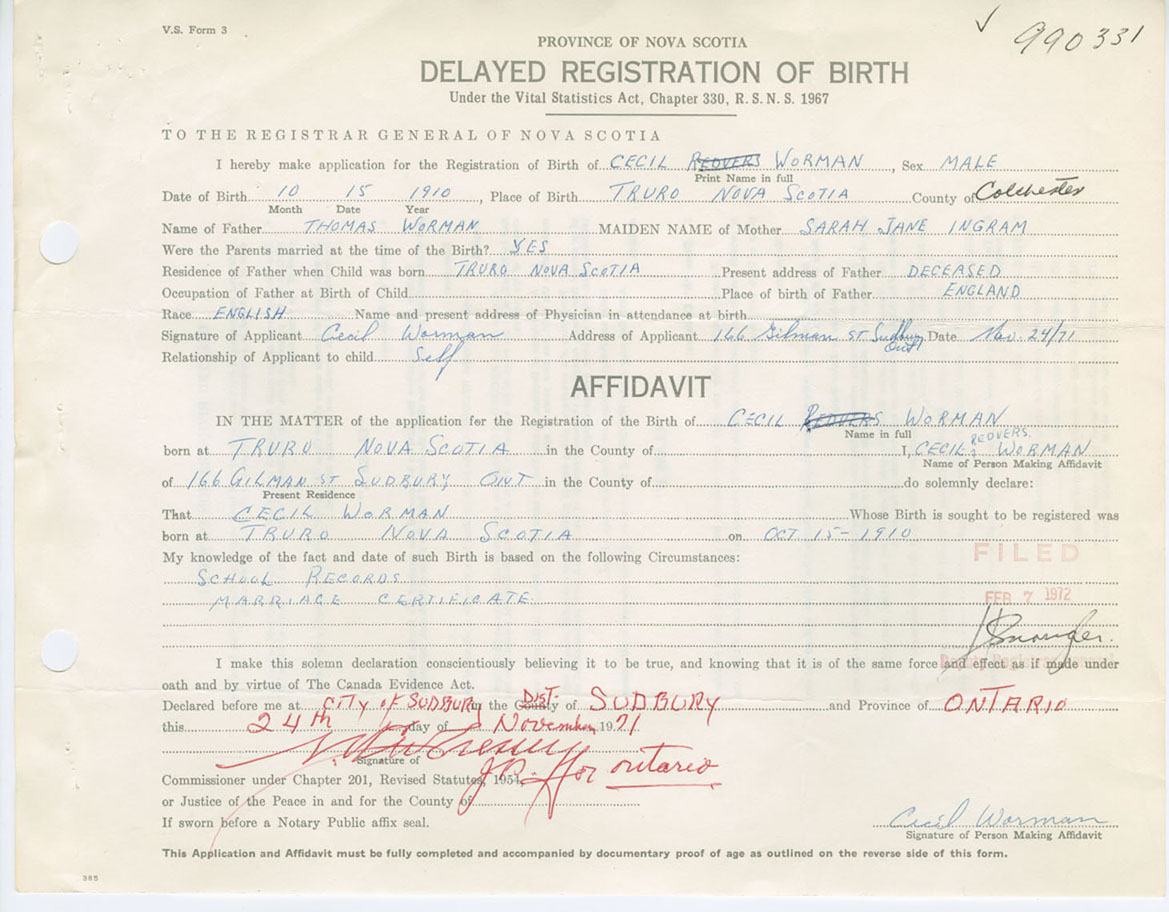 V.S. Form 3
✓ 990331
PROVINCE OF NOVA SCOTIA
DELAYED REGISTRATION OF BIRTH
Under the Vital Statistics Act, Chapter 330, R.S.N.S. 1967
TO THE REGISTRAR GENERAL OF NOVA SCOTIA
I hereby make application for the Registration of Birth of CECIL REDVERS WORMAN, Sex MALE
Print Name in full
Date of Birth 10 15 1910, Place of Birth TRURO NOVA SCOTIA County of Colchester
Month Date Year
Name of Father THOMAS WORMAN MAIDEN NAME of Mother SARAH JANE INGRAM
Were the Parents married at the time of the Birth? YES
Residence of Father when Child was born TRURO NOVA SCOTIA Present address of Father DECEASED
Occupation of Father at Birth of Child Place of birth of Father ENGLAND
Race ENGLISH Name and present address of Physician in attendance at birth
Signature of Applicant Cecil Worman Address of Applicant 166 Gilman ST Sudbury Ont Date Nov. 24/71
Relationship of Applicant to child Self
AFFIDAVIT
IN THE MATTER of the application for the Registration of the Birth of CECIL REDVERS WORMAN
Name in full
born at TRURO NOVA SCOTIA in the County of I, CECIL REDVERS WORMAN
Name of Person Making Affidavit
of 166 GILMAN ST SUDBURY ONT in the County of do solemnly declare:
Present Residence
That CECIL WORMAN Whose Birth is sought to be registered was
born at TRURO NOVA SCOTIA on OCT 15-1910
My knowledge of the fact and date of such Birth is based on the following Circumstances:
FILED
SCHOOL RECORDS
MARRIAGE CERTIFICATE
FEB 7 1972
I make this solemn declaration conscientiously believing it to be true, and knowing that it is of the same force and effect as if made under
oath and by virtue of The Canada Evidence Act.
Declared before me at CITY OF SUDBURY in the County DIST. of SUDBURY and Province of ONTARIO
this 24th day of November 1971
Signature of
J.P. for ontario
Commissioner under Chapter 201, Revised Statutes, 1954,
or Justice of the Peace in and for the County of
If sworn before a Notary Public affix seal.
Cecil Worman
Signature of Person Making Affidavit
This Application and Affidavit must be fully completed and accompanied by documentary proof of age as outlined on the reverse side of this form.
385